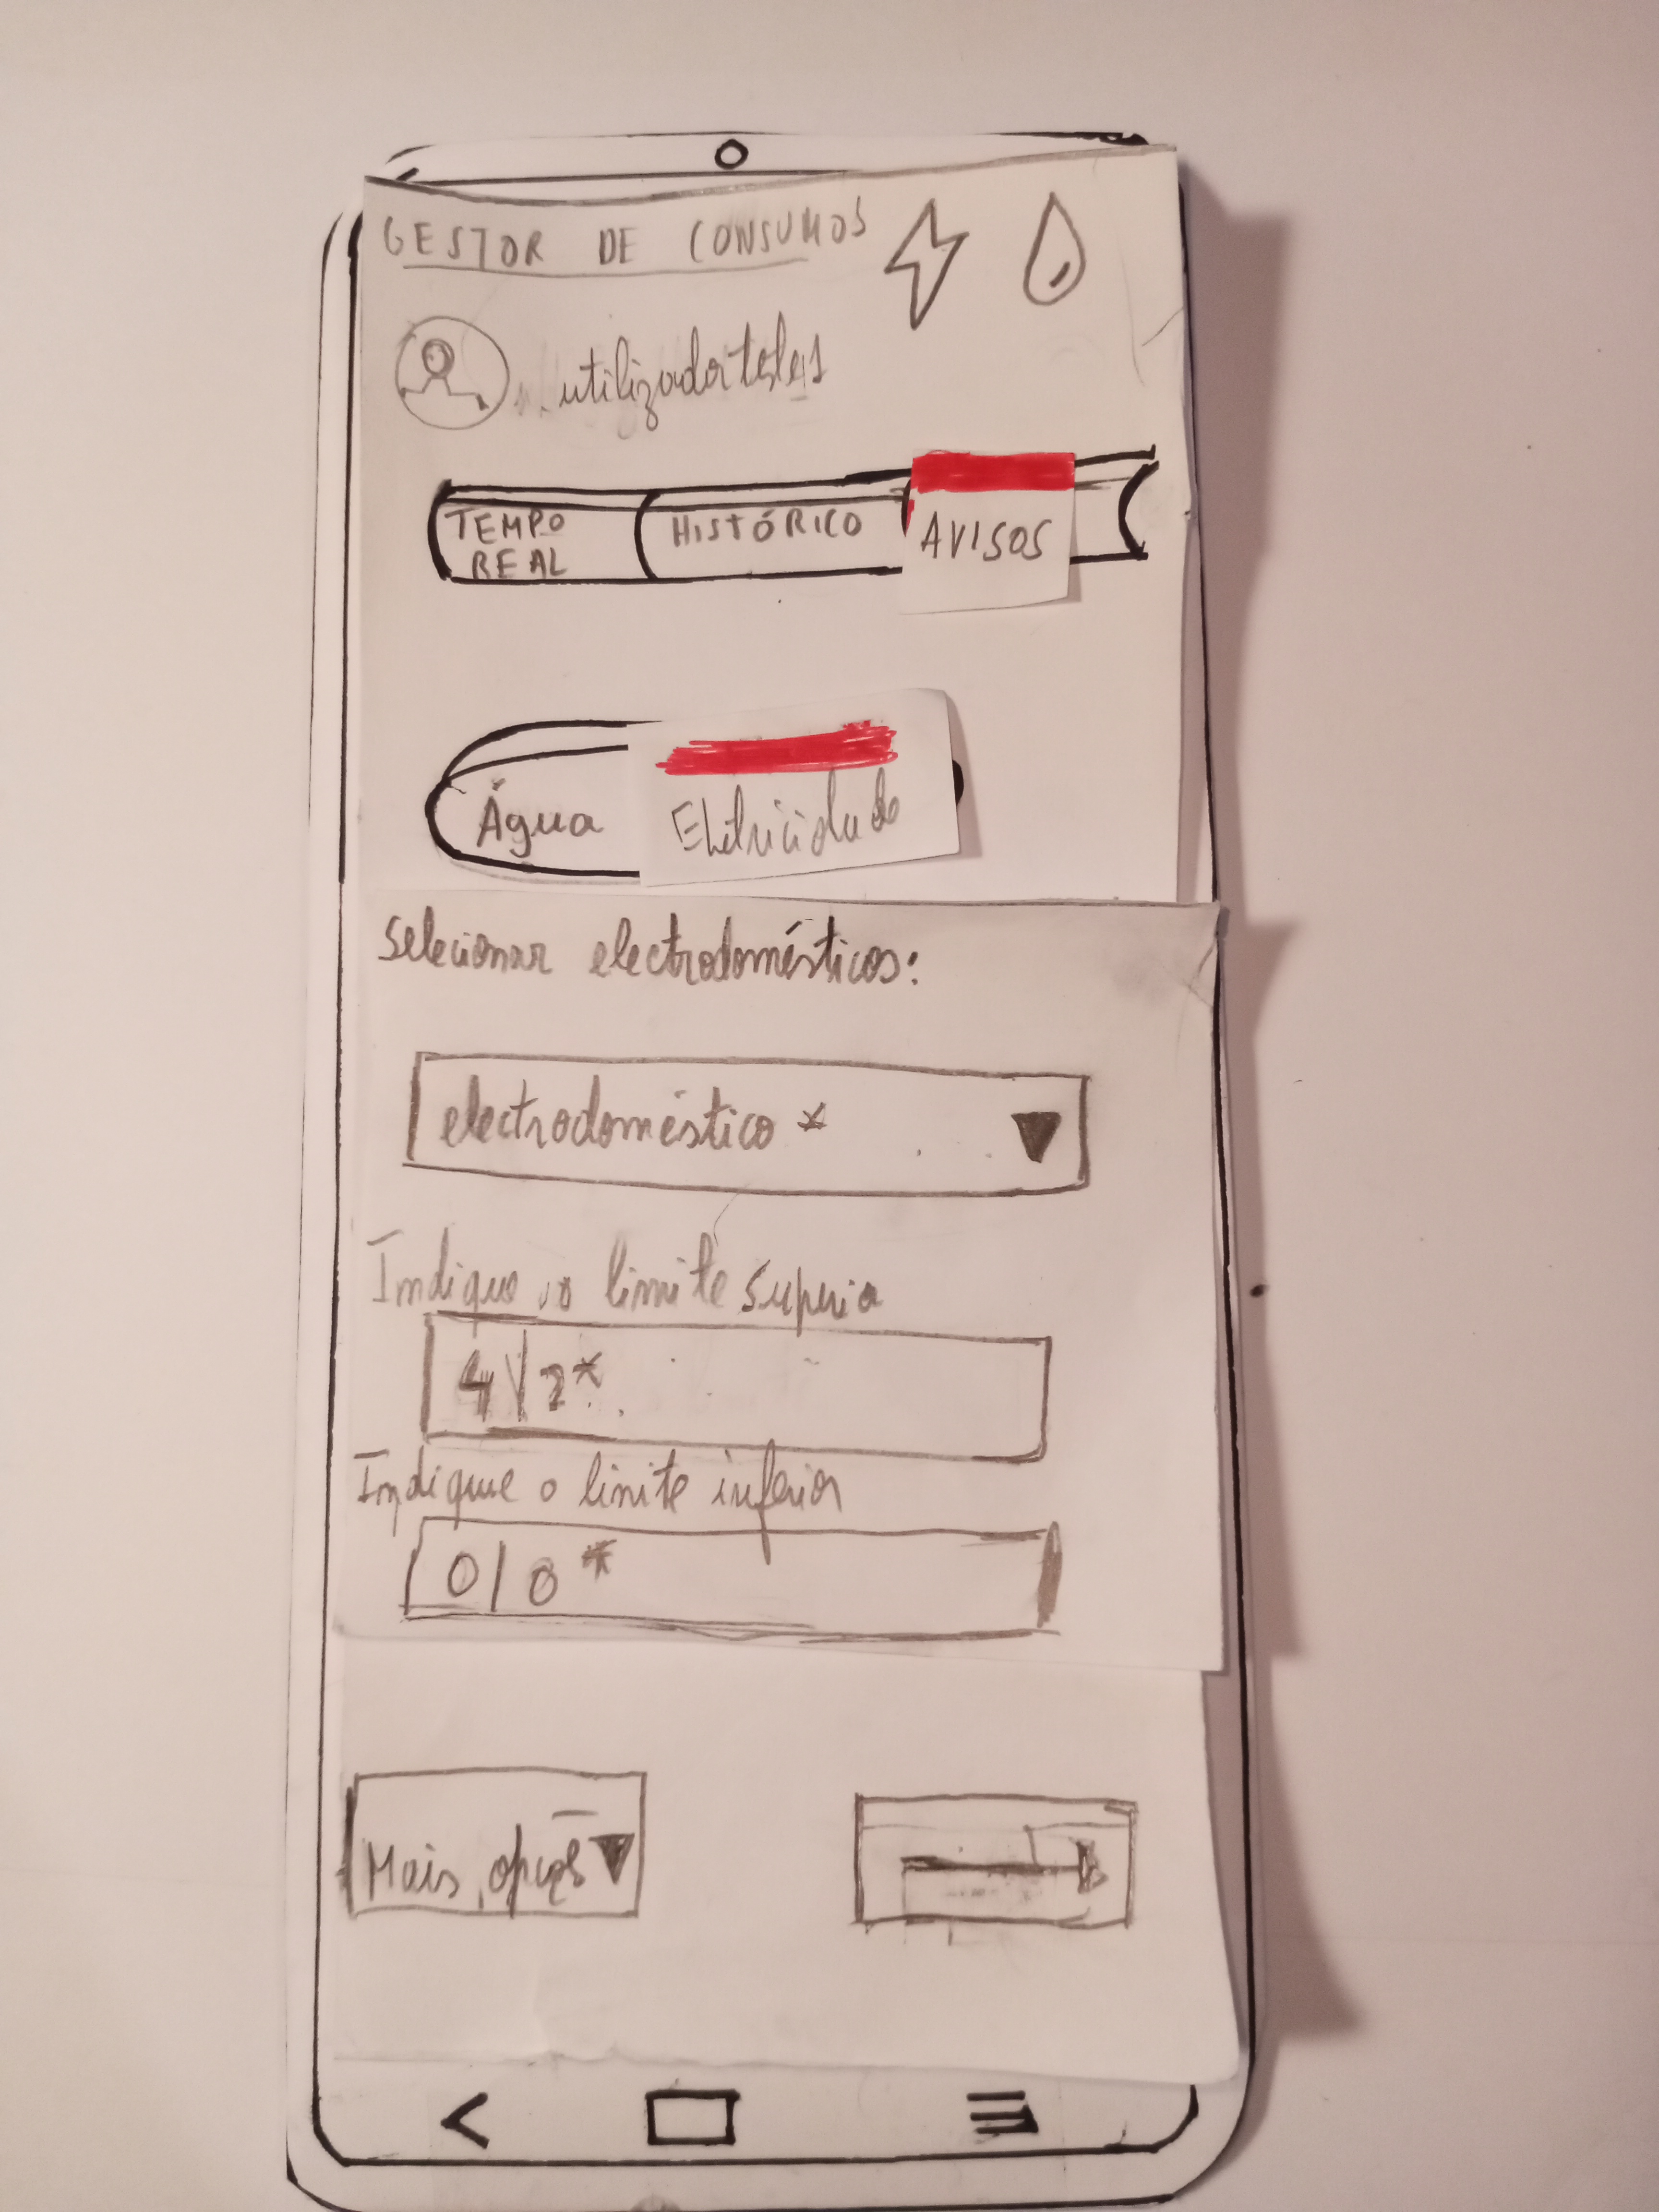 GESTOR DE CONSUMOS
utilizadorteste1
TEMPO REAL
HISTÓRICO
AVISOS
Água
Eletricidade
Selecionar electrodomésticos:
electrodoméstico *
Indique o limite superior
4|2*
Indique o limite inferior
0|0*
Mais opções